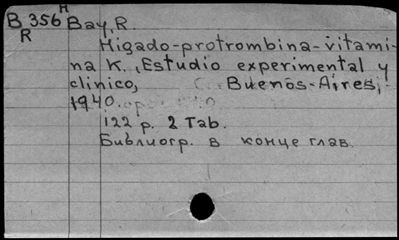 H
B 356 Bay, R.
R
Higado-protrombina-vitami-
na K., Estudio experimental y
clinico, Buenos-Aires,
1940.
122 p. 2 Tab.
Библиогр. в конце глав.